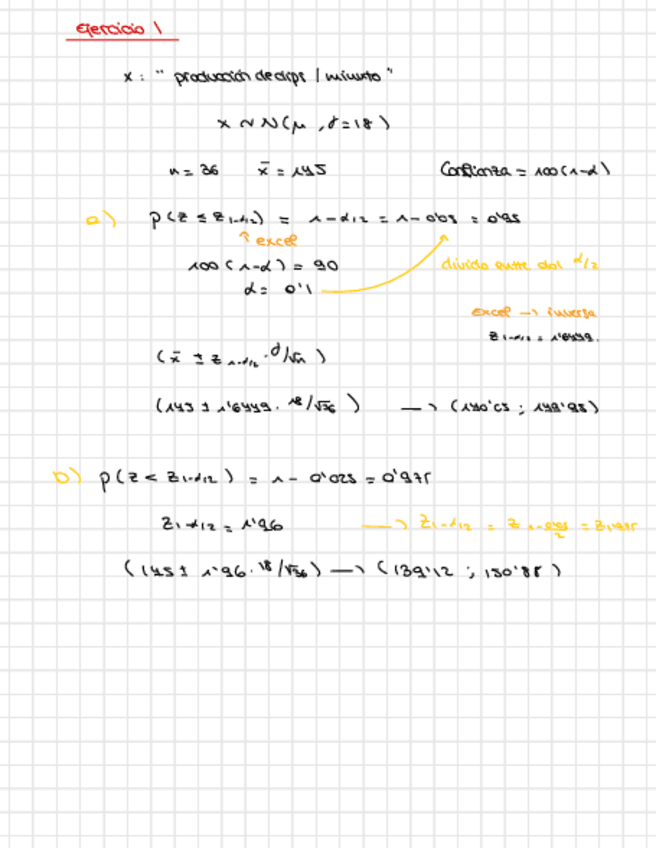 Ejercicio 1
x : " producción de chips / minuto "
x ~ N(μ , σ=18)
n = 36 x̄ = 145 Confianza = 100(1-α)
a) p(z ≤ z1-α/2) = 1-α/2 = 1-0'05 = 0'95
↑ excel
100(1-α) = 90 divido entre dos α/2
α = 0'1
excel → inversa
z1-α/2 = 1'6449.
(x̄ ± z1-α/2 · σ/√n)
(145 ± 1'6449 · 18/√36) → (140'05 ; 149'95)
b) p(z < z1-α/2) = 1 - 0'025 = 0'975
z1-α/2 = 1'96 → z1-α/2 = z1-0'05/2 =
(145 ± 1'96 · 18/√36) → (139'12 ; 150'88)